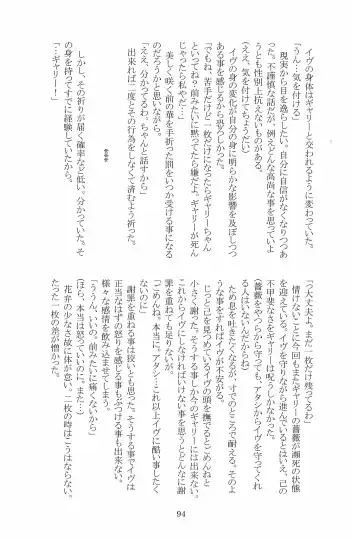 イヴの身体はギャリーと交われるように変わっていた。
「うん…気を付ける」
現実から目を逸らしたい。自分に自信がなくなりつつあ
った。不謹慎な話だが、例えどんなに高尚な事を思っていよ
うとも性別上抗えないものがある。
(ええ、気を付けてちょうだい)
イヴの身の変化が自分の身に明らかな影響を及ぼしつつ
ある事を感じるから恐ろしかった。
「でもね、苦手だけど一枚だけになったらギャリーちゃん
と話してね。前みたいに黙ってたら嫌だよ。ギャリーが死ん
じゃったら私やだ…」
美しく咲く前の華を手折った罰をいつか受ける事になる
のだろうかと思った。
「ええ、分かってるわ。ちゃんと話すから」
出来れば二度とその行為をしなくて済むよう祈った。
***
しかし、その祈りが届く確率など低い。分かっていた。そ
の身を持ってすでに経験していたから。
「…ギャリー!」
「大丈夫よ。まだ一枚だけ残ってるわ」
情けないことに今回もまたギャリーの薔薇が瀕死の状態
を迎えている。イヴを守りながら進んでいるとはいえ、己の
不甲斐なさをギャリーは呪うしかなかった。
(薔薇をやつらから守っても、アタシから守ってくれ
る人はいないんだからね)
ため息を吐きたくなるが、すでのところで耐える。そのよ
うな事をすればイヴが不安がる。
じっと己を見つめているイヴの頭を撫でるとごめんねと
小さく謝った。そうする事しか今のギャリーには出来ない。
これからイヴにしなければいけない事を思うとどんなに謝
罪を重ねても足りないが。
「ごめんね。本当に。アタシ…これ以上イヴに酷い事したく
ないのに」
謝罪を重ねる事は狡いとも思った。そうする事でイヴは
正当なはずの怒りを感じる事もぶつける事も出来ない。
様々な感情を飲み込ませてしまう。
「ううん、いいの。前みたいに痛くないから」
(ほら、本当は怒っていいのに。また…)
花弁の少なさ故に体が怠い。二枚の時はこうはならない。
たった一枚の差が憎かった。
94